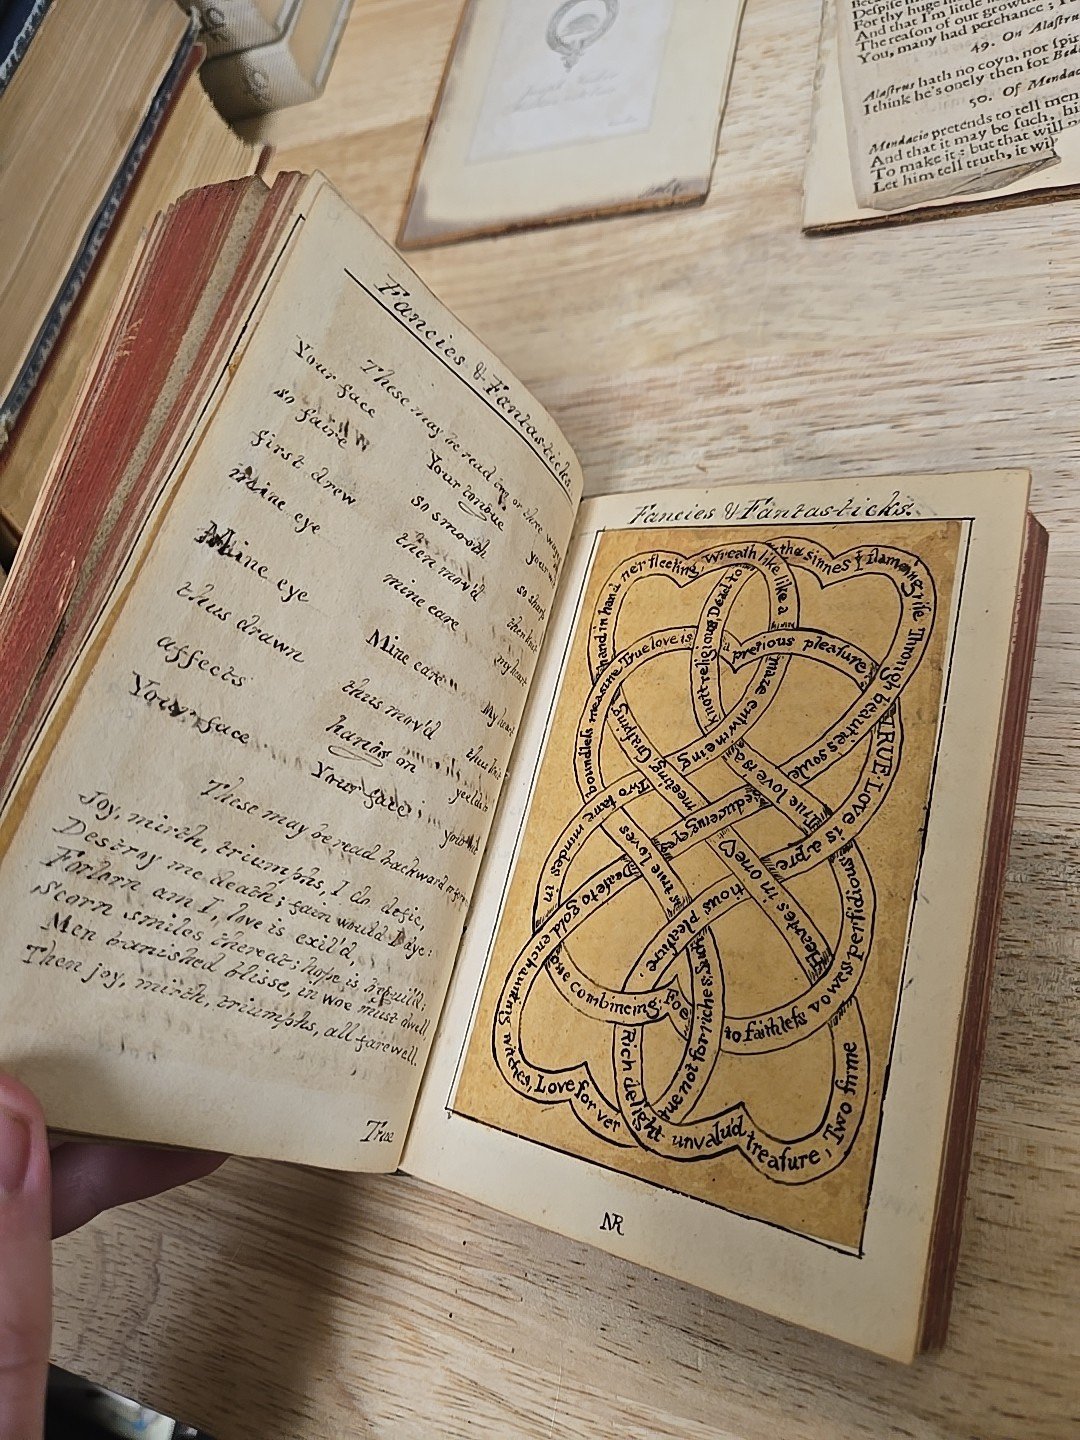 Despise
For thy huge
And that I'm little
The reason of our growth
You, many had perchance;
49. On Alastrus
Alastrus hath no coyn, nor
I think he's onely then for
50. Of Mendacio
Mendacio pretends to tell men
And that it may be such,
To make it: but that will
Let him tell truth, it will
Fancies & Fantasticks.
These may be read two or three ways
Your face Your tongue your
so faire so smooth so sharp
first drew then mov'd then knit
mine eye mine eare my heart
Mine eye Mine eare My heart
thus drawn thus mov'd thus knit
affects hangs on yeelds to
Your face Your face your
These may be read backward
Joy, mirth, triumphs, I do defie,
Destroy me death; fain would I dye:
Forlorn am I, love is exil'd,
Scorn smiles thereat; hope is
Men banished blisse, in woe must dwell,
Then joy, mirth, triumphs, all farewell.
True
Fancies & Fantasticks.
True love is a precious pleasure,
Rich delight unvalu'd treasure,
Two firme hearts in one meeting
Grasping hand in hand ne'r fleeting,
Wreath like like a maze entwineing
Two faire mindes in one combineing.
Foe to faithless vowes perfidious
True love is a knot religious,
Dead to the sinnes flameing rise
Through beauties soule seduceing eyes
Deafe to gold enchaunting witches,
Love for vertue not for riches.
True love is a precious pleasure
boundless measure
true loves
NR